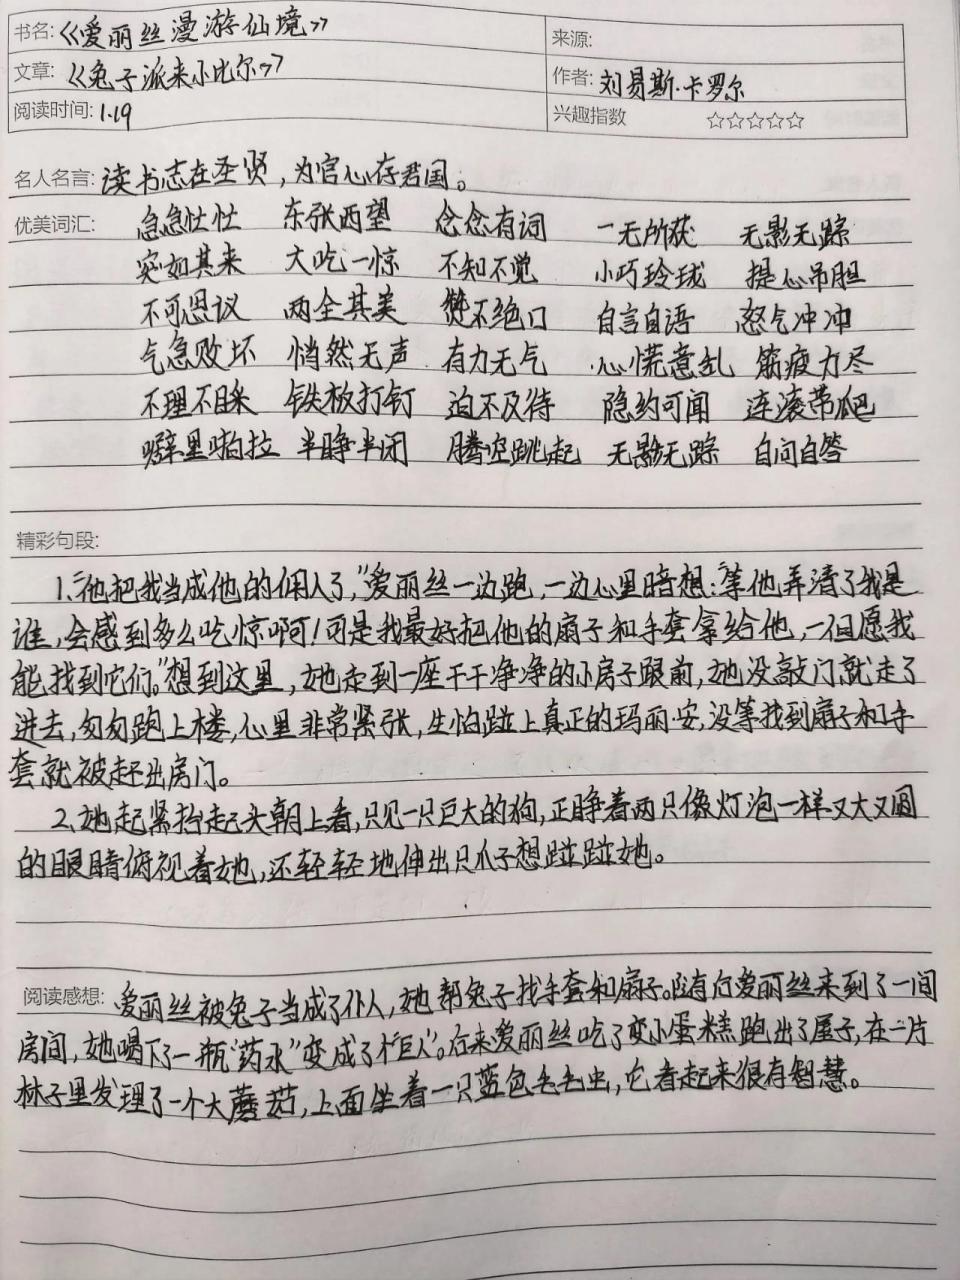 书名:《爱丽丝漫游仙境》
来源:
文章:《兔子派来小比尔》
作者:刘易斯·卡罗尔
阅读时间:1.19
兴趣指数 ☆☆☆☆☆
名人名言:读书志在圣贤,为官心存君国。
优美词汇: 急急忙忙 东张西望 念念有词 一无所获 无影无踪
突如其来 大吃一惊 不知不觉 小巧玲珑 提心吊胆
不可思议 两全其美 赞不绝口 自言自语 怒气冲冲
气急败坏 悄然无声 有力无气 心慌意乱 筋疲力尽
不理不睬 铁板打钉 迫不及待 隐约可闻 连滚带爬
噼里啪拉 半睁半闭 腾空跳起 无影无踪 自问自答
精彩句段:
1、“他把我当成他的佣人了,”爱丽丝一边跑,一边心里暗想:“等他弄清了我是
谁,会感到多么吃惊啊!可是我最好把他的扇子和手套拿给他,一但愿我
能找到它们。”想到这里,她走到一座干干净净的小房子跟前,她没敲门就走了
进去,匆匆跑上楼,心里非常紧张,生怕碰上真正的玛丽·安,没等找到扇子和手
套就被赶出房门。
2、她起紧抬起头朝上看,只见一只巨大的狗,正睁着两只像灯泡一样又大又圆
的眼睛俯视着她,还轻轻地伸出只爪子想碰碰她。
阅读感想: 爱丽丝被兔子当成了仆人,她帮兔子找手套和扇子。随后爱丽丝来到了一间
房间,她喝下了一瓶“药水”变成了个“巨人”。后来爱丽丝吃了变小蛋糕跑出了屋子,在一片
林子里发理了一个大蘑菇,上面坐着一只蓝色毛毛虫,它看起来很有智慧。